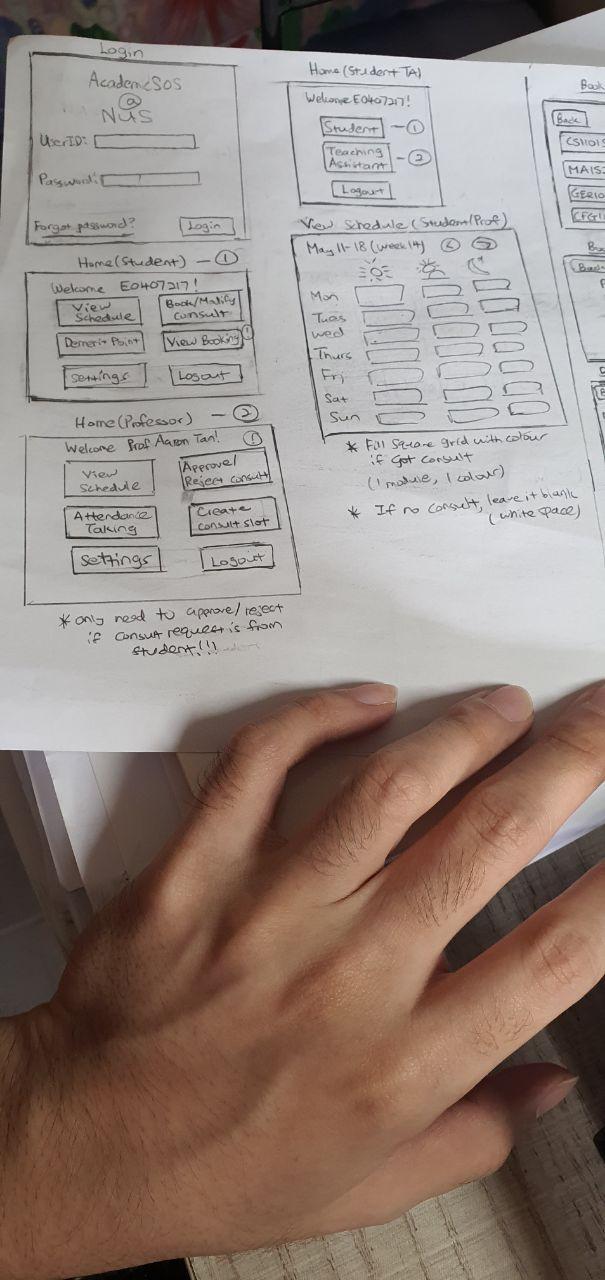 Login
AcademicSOS
@
NUS
UserID:
Password:
Forgot password?
Login
Home (Student) — 1
Welcome E0407217!
View Schedule
Book/Modify Consult
Demerit Point
View Booking 1
Settings
Logout
Home (Professor) — 2
Welcome Prof Aaron Tan! 1
View Schedule
Approve/ Reject consult
Attendance Taking
Create consult slot
Settings
Logout
* only need to approve/reject
if consult request is from
student!!!
Home (Student TA)
Welcome E0407217!
Student — 1
Teaching Assistant — 2
Logout
View Schedule (Student/Prof)
May 11-18 (Week 14)
Mon
Tues
Wed
Thurs
Fri
Sat
Sun
* Fill square grid with colour
if got consult
(1 module, 1 colour)
* If no consult, leave it blank
(white space)
Book
Back